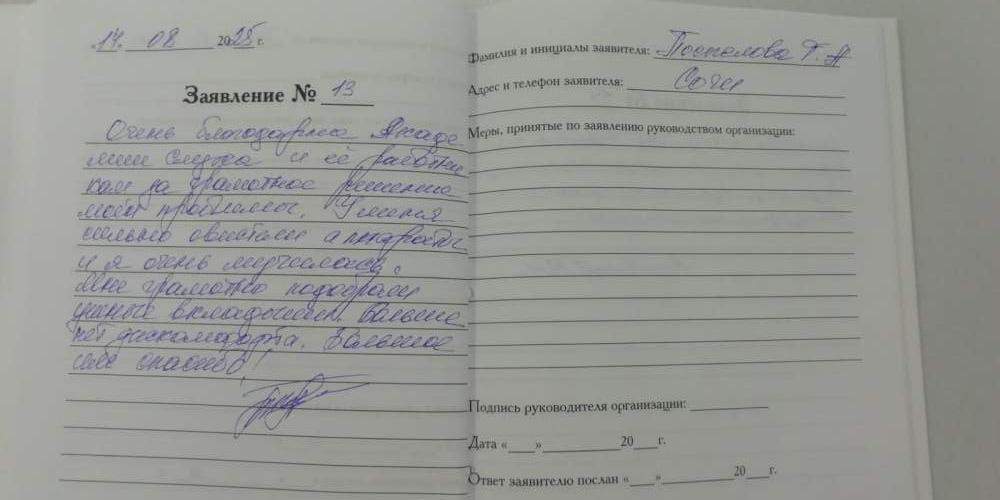 14. 08 2025 г.
Заявление № 13
Очень благодарна Акаде
мии слуха и её работни
кам за грамотное решение
моей проблемы. У меня
сильно свистели аппараты
и я очень мучилась.
Мне грамотно подобрали
ушные вкладыши. Больше
нет дискомфорта. Большое
спасибо!
Фамилия и инициалы заявителя: Поспелова Т. А
Адрес и телефон заявителя: Сочи
Меры, принятые по заявлению руководством организации:
Подпись руководителя организации:
Дата «___» ________ 20___г.
Ответ заявителю послан «___» ________ 20___г.